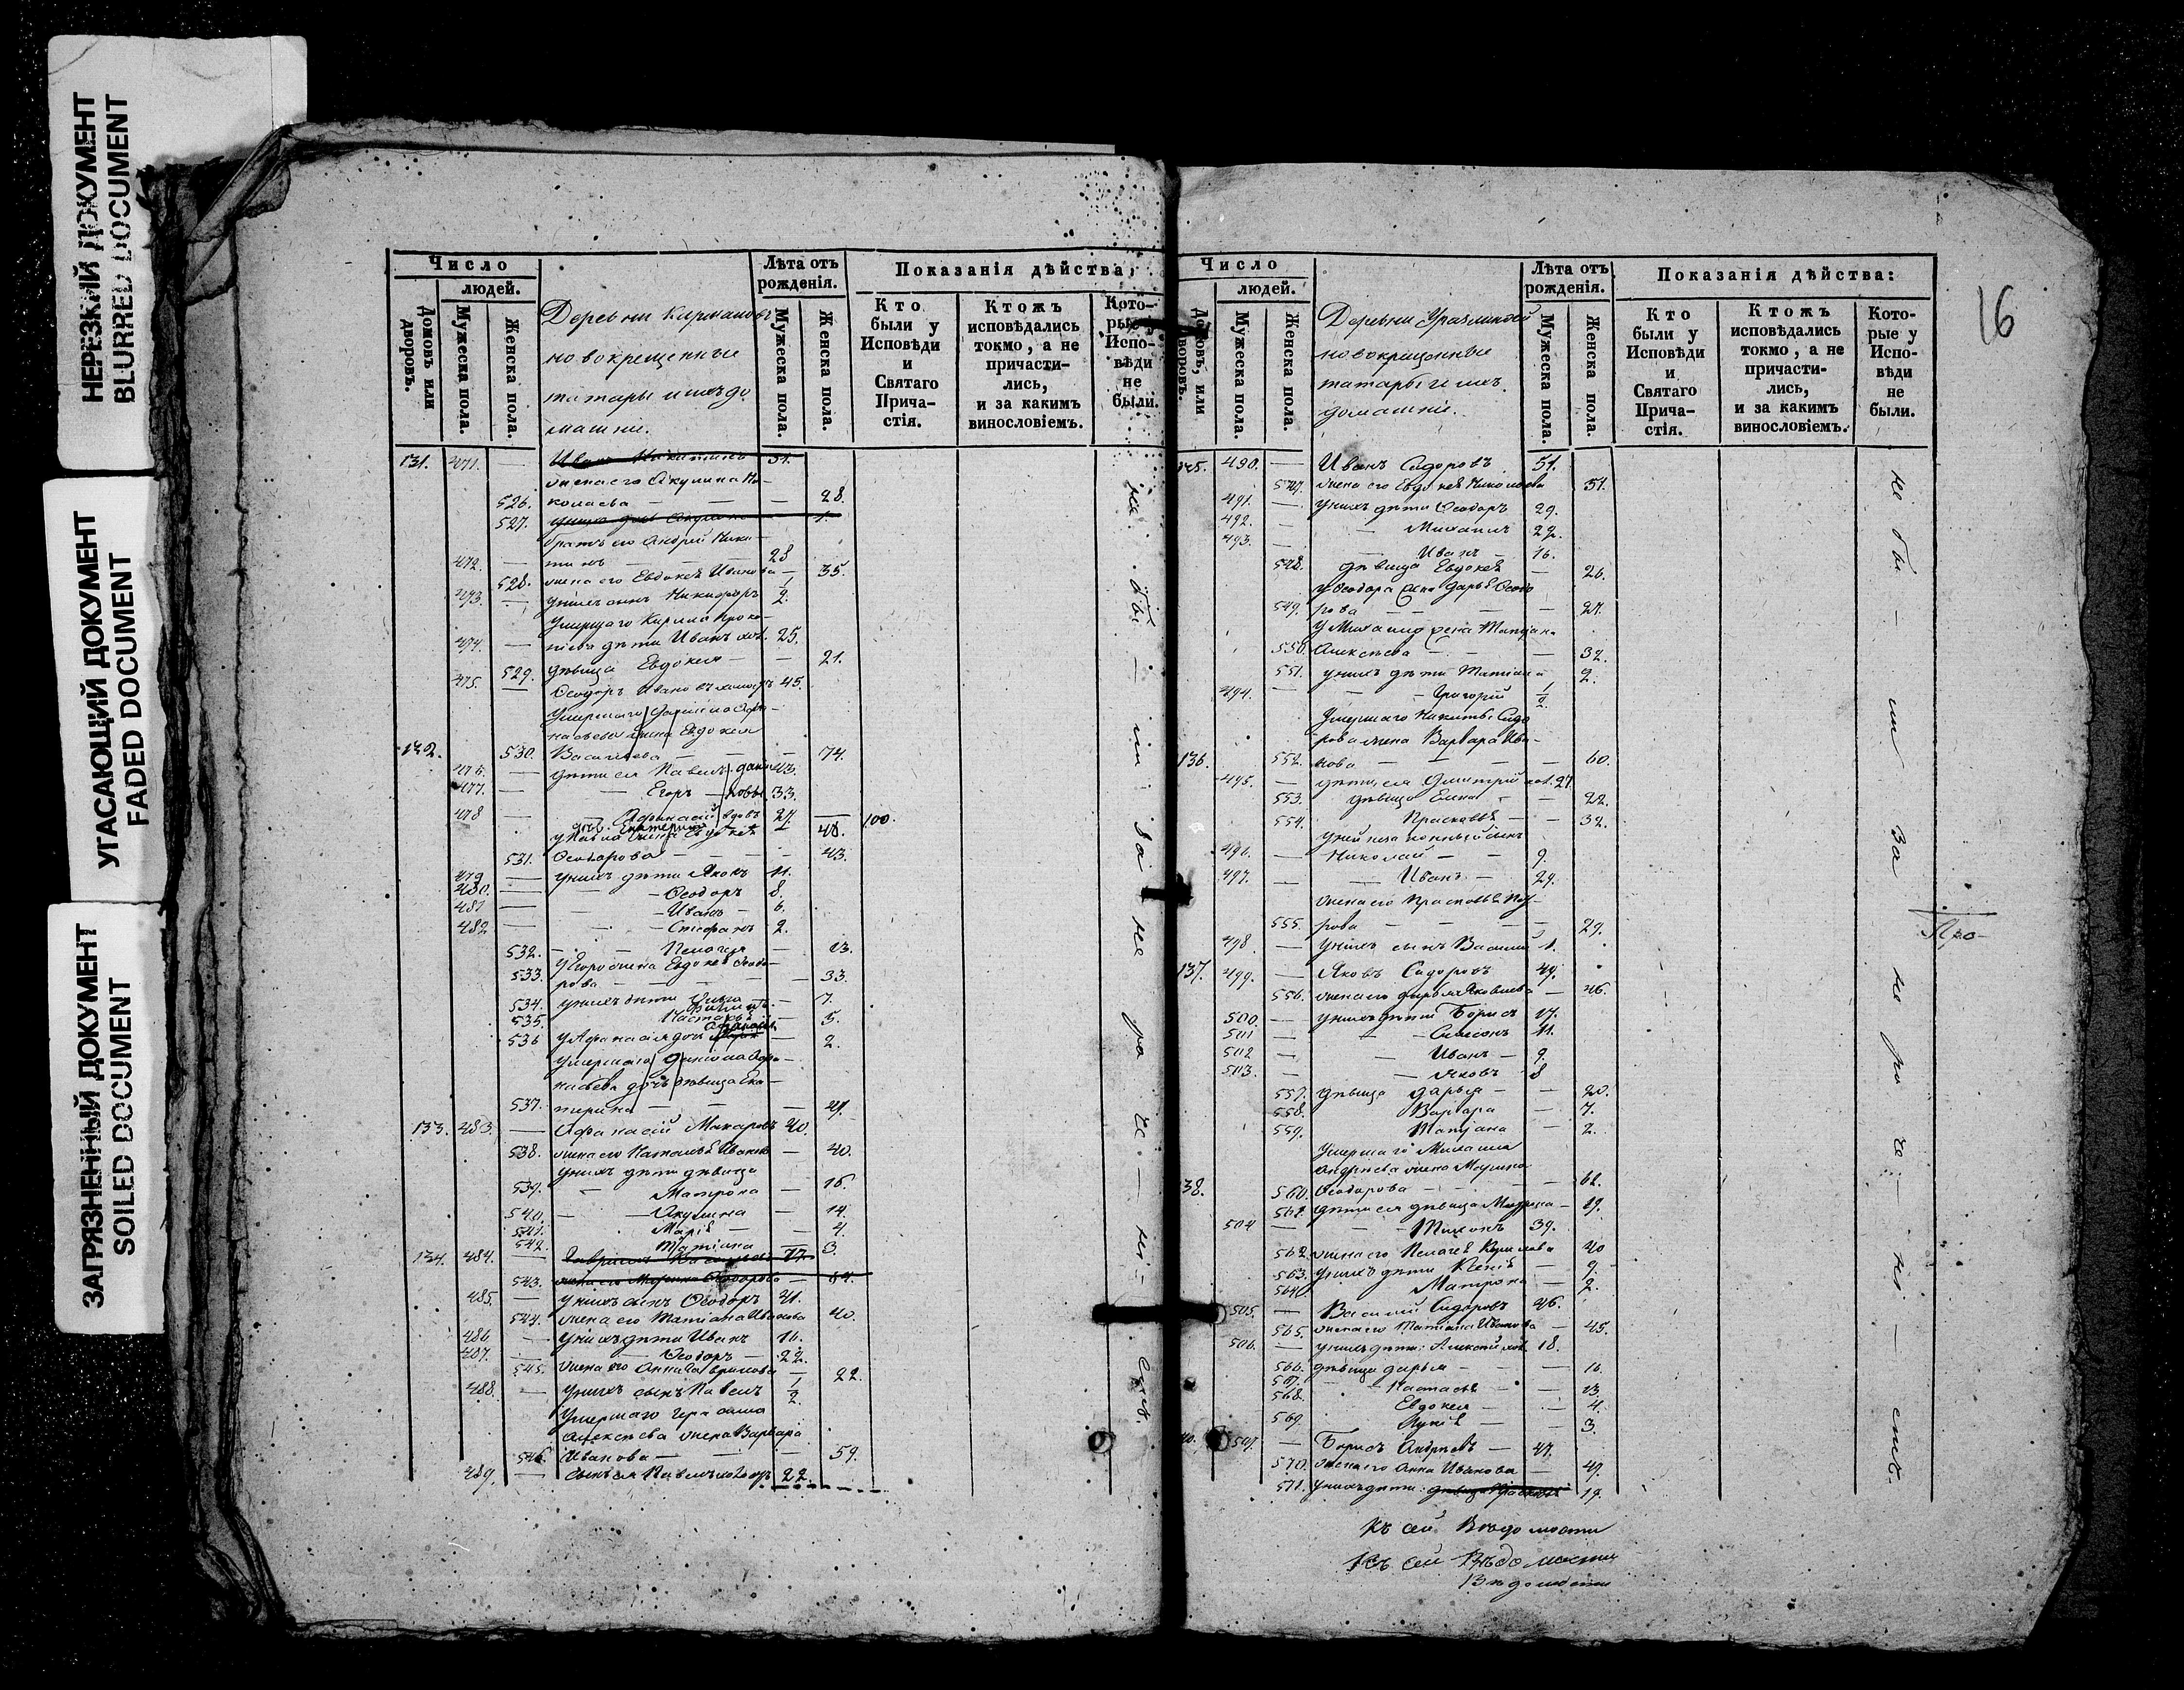 НЕРЕЗКИЙ ДОКУМЕНТ
BLURRED DOCUMENT
УГАСАЮЩИЙ ДОКУМЕНТ
FADED DOCUMENT
ЗАГРЯЗНЕННЫЙ ДОКУМЕНТ
SOILED DOCUMENT
Число
людей.
Домовъ или дворовъ.
Мужеска пола.
Женска пола.
Деревни
новокрещенные
татары и ихъ до
машни.
Лѣта отъ
рожденія.
Мужеска пола.
Женска пола.
Показанія дѣйства:
Кто
были у
Исповѣди
и
Святаго
Прича-
стія.
Ктожъ
исповѣдались
токмо, а не
причасти-
лись,
и за какимъ
винословіемъ.
Кото-
рые у
Испо-
вѣди
не
были.
131. 471. — Иванъ Никитинъ 31.
жена его Акулина Ни-
526. колаева — — 28.
527.
братъ его Андрей Ники-
472. — тинъ — 28
528. жена его Евдокеѣ Иванова — 35.
473. — у нихъ сынъ Никифоръ 1/2.
474. — дѣти Иванъ хол. 25.
529. дѣвица Евдокея — — 21.
475. — Ѳеодоръ Ивановъ холостъ 45.
жена Евдокея
132. 530. Васильева — — 74.
476. — дѣти ея Павелъ 43.
477. — — Егоръ — 33.
478 — Афанасій вдовъ 27. 100.
48.
531. Ѳеодорова — — 43.
479 — у нихъ дѣти Яковъ 11.
480. — — Ѳеодоръ 8.
481 — — Иванъ — 6.
482 — — Стефанъ 2.
532. — — Пелагея — 13.
у Егора жена Евдокеѣ Ѳеодо-
533. рова — — — 33.
534. у нихъ дѣти — 7.
535. — 5.
536 у Афанасія дочь — 2.
дочь дѣвица Ека-
537. терина — — —
133. 483. — Афанасій Макаровъ 40.
538. жена его Наталья Иванова — 40.
у нихъ дѣти дѣвица
539. — Матрона — 16.
540. — — Акулина — 14.
541. Маріѣ — 4.
542. Матіана — 3.
134. 484. — Гаврилъ 77.
543. жена его Марина Ѳеодорова —
485. — у нихъ сынъ Ѳеодоръ 41.
544. жена его Татіана Иванова 40.
486 — у нихъ дѣти Иванъ 16.
487. — — Ѳеодоръ — 22.
545. жена его Анна Гаврилова — 22.
488. — у нихъ сынъ Павелъ 1/2.
Умершаго Герасима
Алексѣева жена Варвара
546. Иванова — — 59.
489. — сынъ ея Павелъ 22.
не бы — ли за не ра че — ні — емъ.
Число
людей.
Домовъ, или дворовъ.
Мужеска пола.
Женска пола.
Деревни
новокрещонные
татары и ихъ
домашніе.
Лѣта отъ
рожденія.
Мужеска пола.
Женска пола.
Показанія дѣйства:
Кто
были у
Исповѣди
и
Святаго
Прича-
стія.
Ктожъ
исповѣдались
токмо, а не
причасти-
лись,
и за какимъ
винословіемъ.
Кото-
рые у
Испо-
вѣди
не
были.
16
135. 490. — Иванъ Сидоровъ 51.
547. жена его Евдокеѣ Николаева 51.
491. — у нихъ дѣти Ѳеодоръ 29.
492. — — Михаилъ 27.
493. — — Иванъ — 16.
548. дѣвица Евдокеѣ — 26.
у Ѳеодора жена Дарьѣ Ѳеодо
549. рова — — — 27.
у Михаила жена Татіана
550. Алексѣева — — 32.
551. у нихъ дѣти Татіана 2.
494. — — Григорій 1/2.
Умершаго Никиты Сидо
рова жена Варвара Ива-
136. 552. нова — — — 60.
495. — дѣти ея Дмитрій хол. 27.
553. дѣвица Елена — — 22.
554. Прасковьѣ — — 32.
у ней незаконный сынъ
496. — Николай — — 9.
497. — — Иванъ — 29.
жена его Прасковьѣ Пет-
555. рова — — — 29.
498. — у нихъ сынъ Василій 1.
137. 499. — Яковъ Сидоровъ 49.
556. жена его Дарья Яковлева — 46.
500. — у нихъ дѣти Борисъ 17.
501 — — Симеонъ 11.
502 — — Иванъ — 9.
503. — — Яковъ 8
557. дѣвица Дарья — — 20.
558. Варвара — 7.
559. Татіана — 2.
Умершаго Михаила
Андреева жена Марина
138. 560. Ѳеодорова — — — 61.
561. дѣти ея дѣвица — 19.
504 — — Тихонъ 39.
562. жена его Пелагеѣ Кирилова 40
563. у нихъ дѣти — 9.
564. Матрона — 2.
505. — Василій Сидоровъ 46.
565. жена его Татіана Иванова — 45.
506. — у нихъ дѣти: Алексей хол. 18.
566. дѣвица Дарья — — 16.
567.
568. — Настасьѣ — — 13.
Евдокея — — 4.
569. — — 3.
507. — Борисъ Андреевъ — 47.
570. жена его Анна Иванова — 49.
571. у нихъ дѣти: 19.
не бы — ли за не ра че — ні — емъ.
Про-
Къ сей Вѣдомости
Къ сей Вѣдомости
Вѣдомости